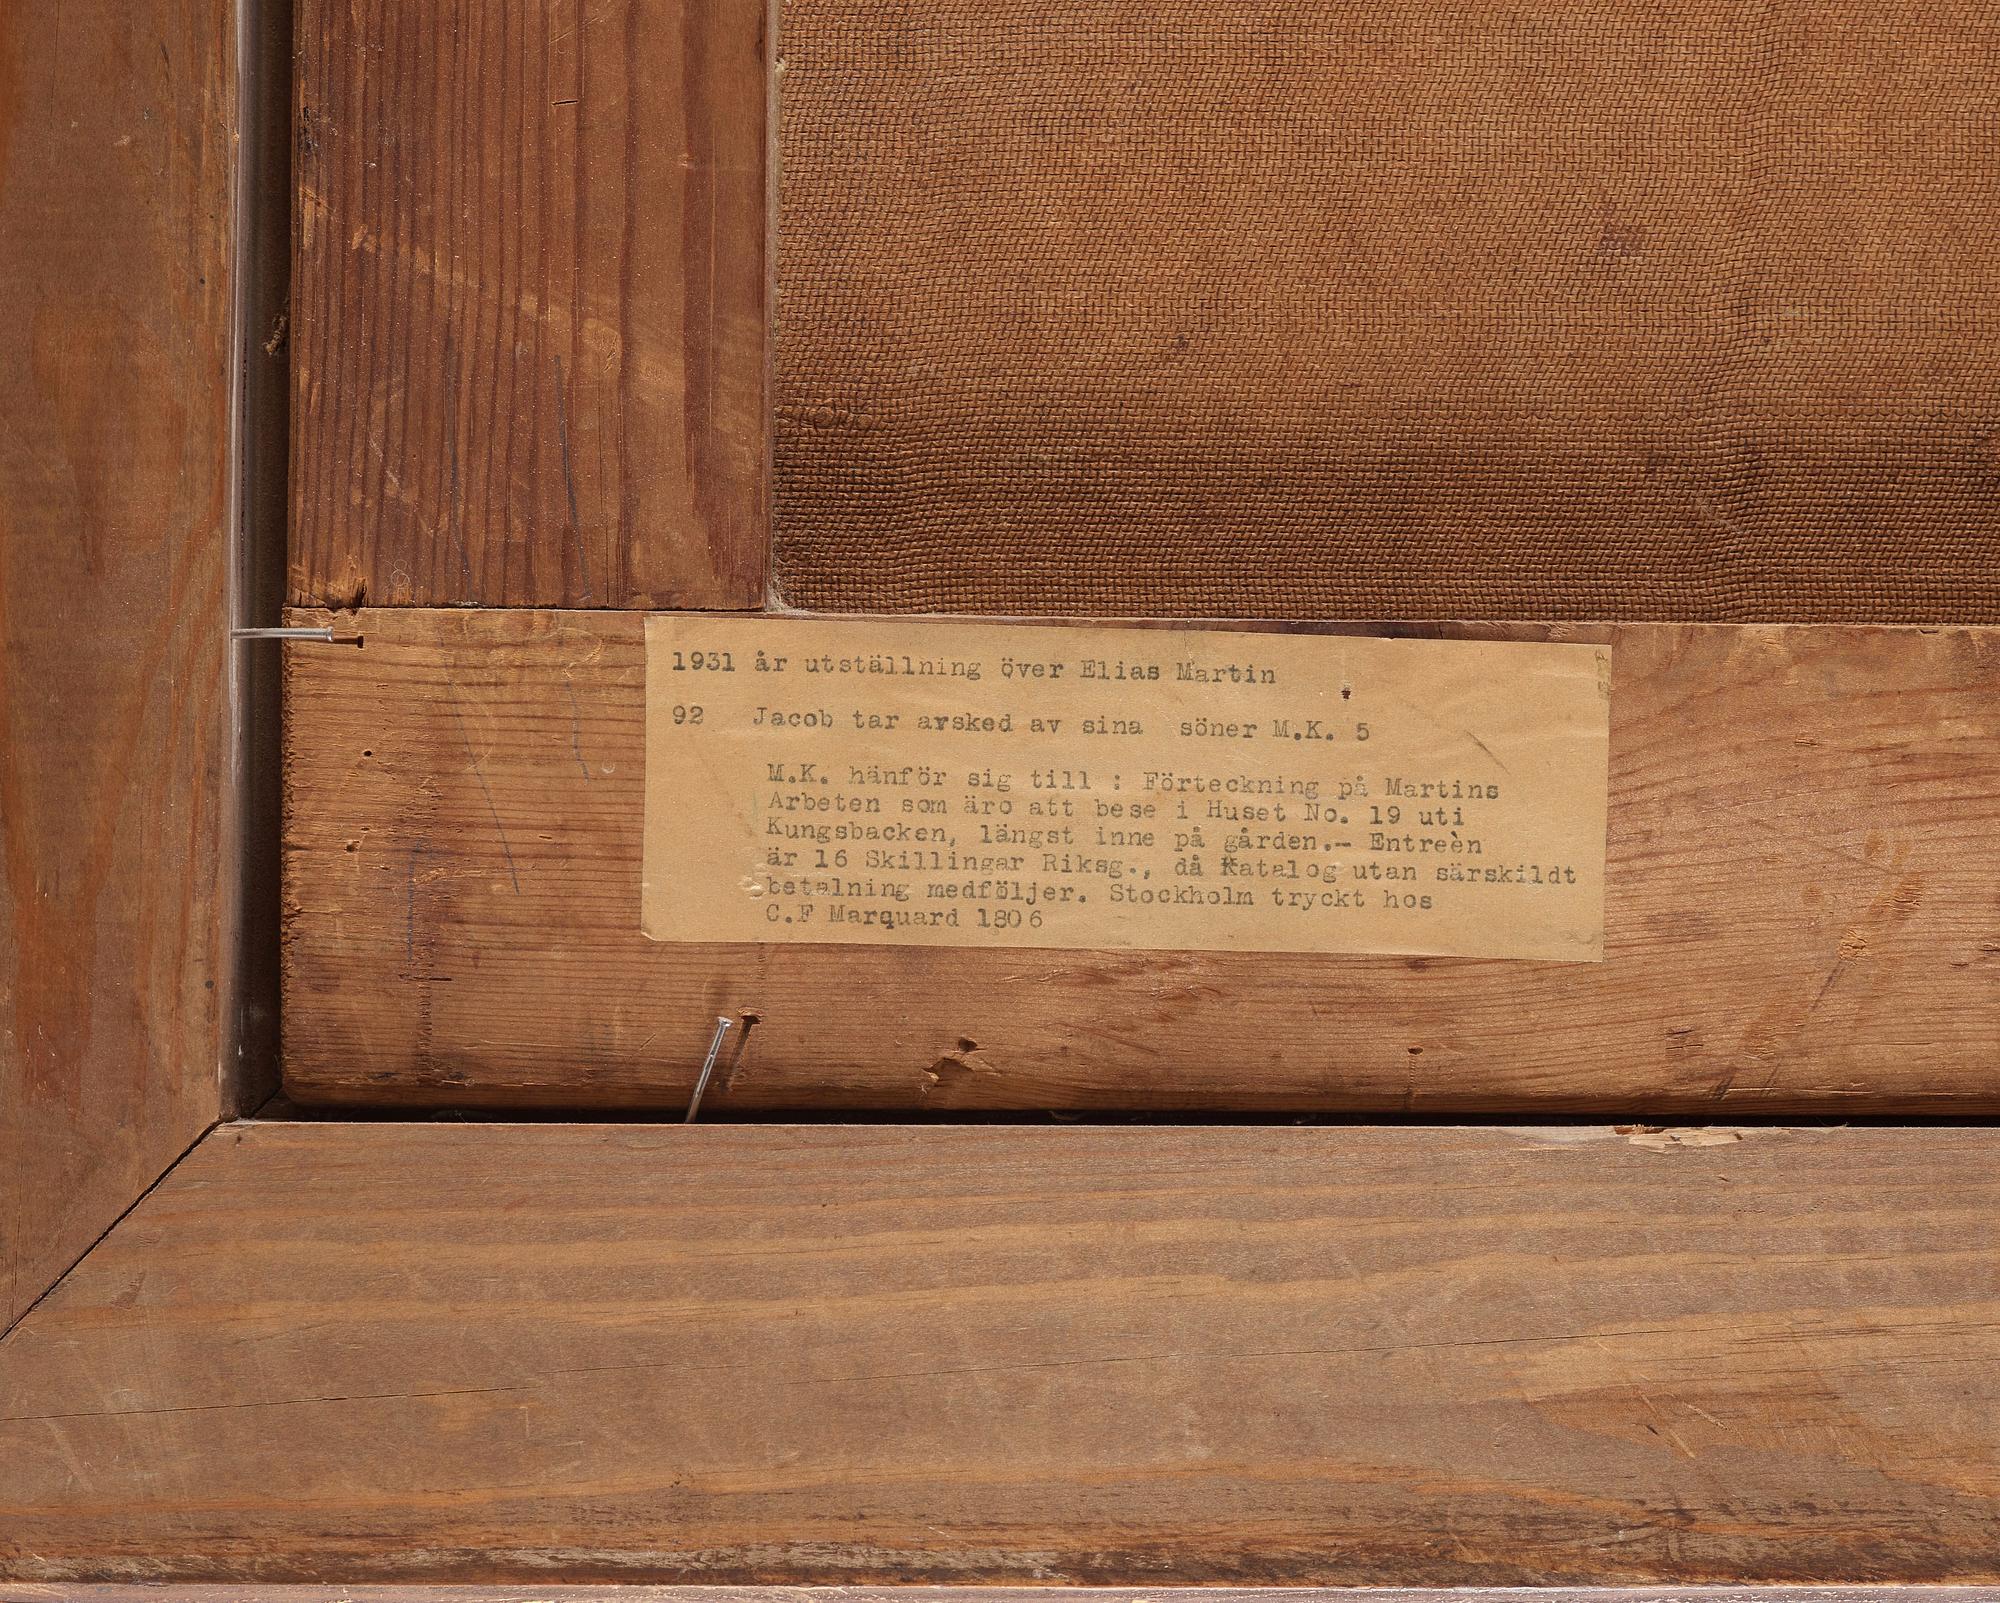 1931 år utställning över Elias Martin
92 Jacob tar arsked av sina söner M.K. 5
M.K. hänför sig till : Förteckning på Martins
Arbeten som äro att bese i Huset No. 19 uti
Kungsbacken, längst inne på gården.- Entreèn
är 16 Skillingar Riksg., då Katalog utan särskildt
betalning medföljer. Stockholm tryckt hos
C.F Marquard 1806